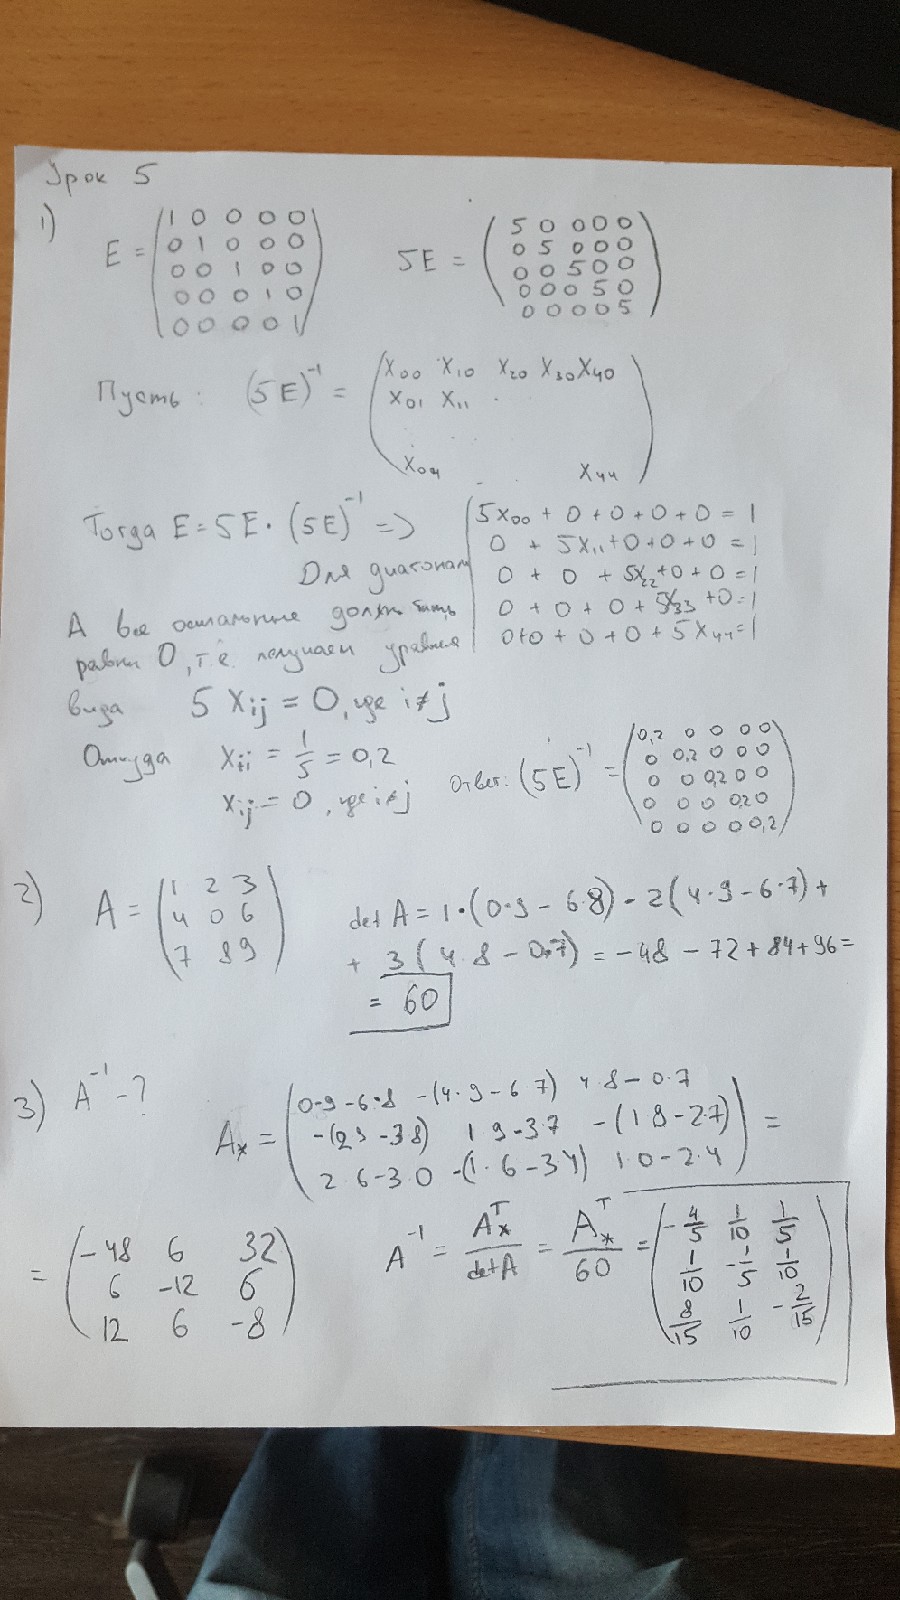 Урок 5
1)
E = (1 0 0 0 0
0 1 0 0 0
0 0 1 0 0
0 0 0 1 0
0 0 0 0 1)
5E = (5 0 0 0 0
0 5 0 0 0
0 0 5 0 0
0 0 0 5 0
0 0 0 0 5)
Пусть: (5E)⁻¹ = (x₀₀ x₁₀ x₂₀ x₃₀ x₄₀
x₀₁ x₁₁ .
x₀₄ . . x₄₄)
Тогда E = 5E · (5E)⁻¹ =>
Для диагонали
5x₀₀ + 0 + 0 + 0 + 0 = 1
0 + 5x₁₁ + 0 + 0 + 0 = 1
0 + 0 + 5x₂₂ + 0 + 0 = 1
0 + 0 + 0 + 5x₃₃ + 0 = 1
0 + 0 + 0 + 0 + 5x₄₄ = 1
А все остальные должны быть
равны 0, т.е. получаем уравнения
вида 5 xᵢⱼ = 0, где i ≠ j
Откуда xᵢᵢ = 1/5 = 0,2
xᵢⱼ = 0, где i ≠ j
Ответ: (5E)⁻¹ = (0,2 0 0 0 0
0 0,2 0 0 0
0 0 0,2 0 0
0 0 0 0,2 0
0 0 0 0 0,2)
2) A = (1 2 3
4 0 6
7 8 9)
det A = 1·(0·9 − 6·8) − 2(4·9 − 6·7) +
+ 3(4·8 − 0·7) = −48 − 72 + 84 + 96 =
= 60
3) A⁻¹ − ?
A* = (0·9 − 6·8 −(4·9 − 6 7) 4·8 − 0·7
−(2 9 − 3 8) 1 9 − 3 7 −(1 8 − 2·7)
2 6 − 3 0 −(1·6 − 3 4) 1·0 − 2·4) =
= (−48 6 32
6 −12 6
12 6 −8)
A⁻¹ = A*ᵀ/det A = A*ᵀ/60 = (−4/5 1/10 1/5
1/10 −1/5 1/10
8/15 1/10 −2/15)